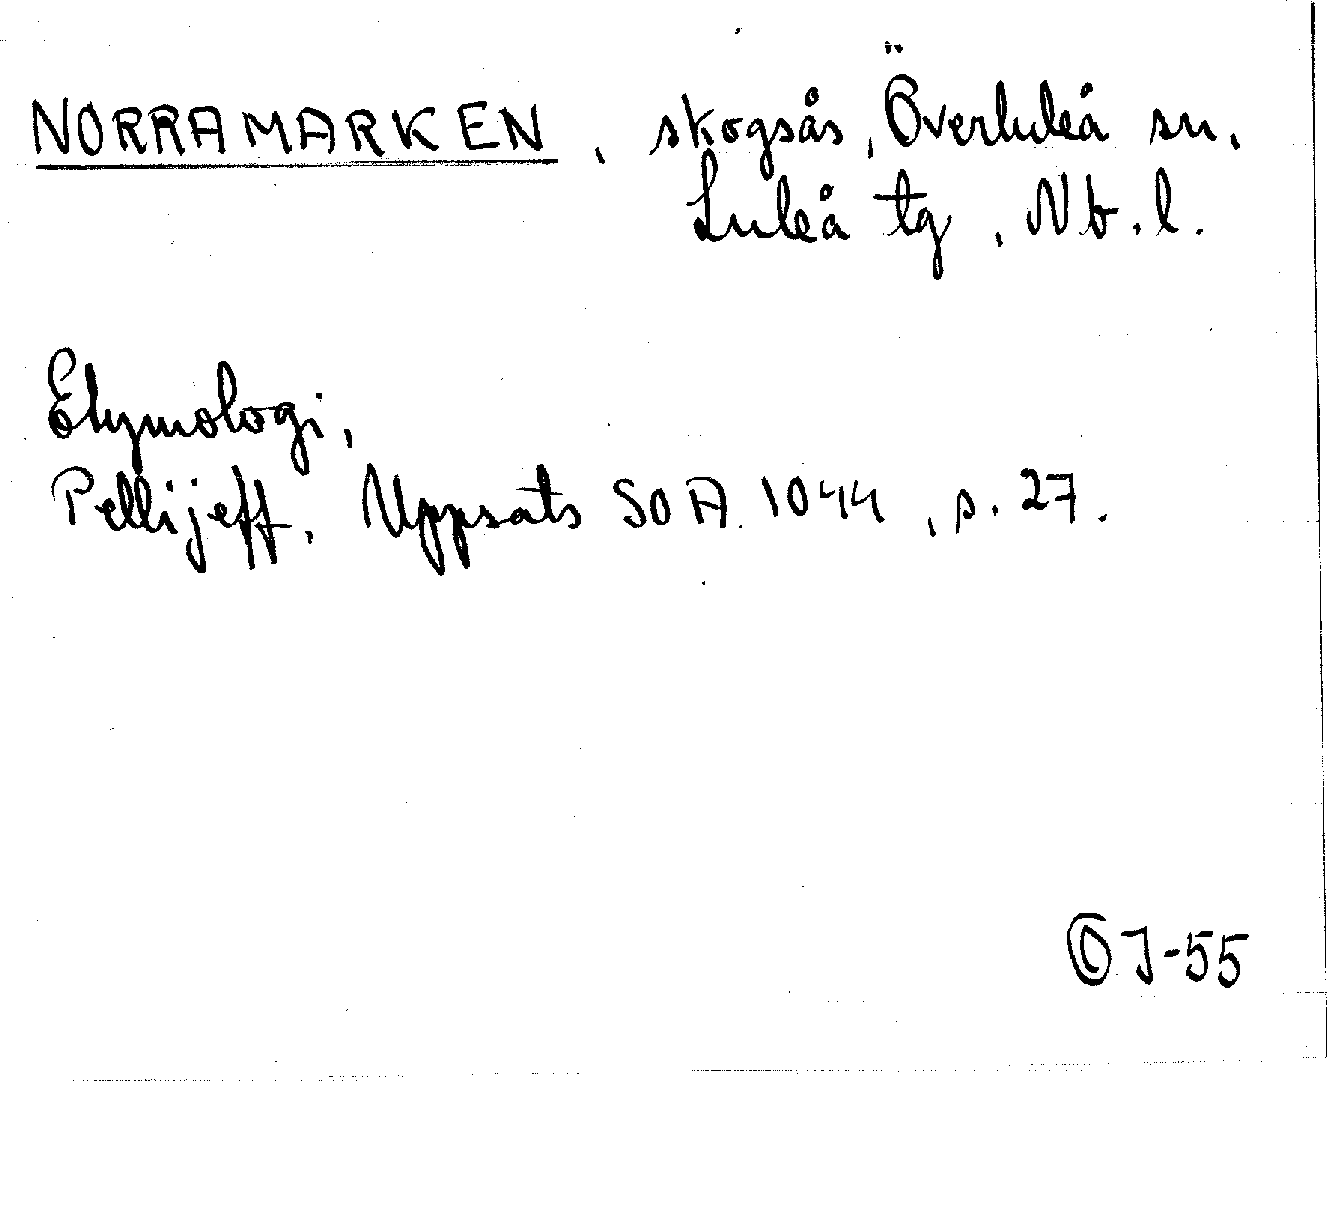 NORRAMARKEN, skogsås, Överluleå sn.
Luleå tg, Nb.l.
Etymologi,
Pellijeff, Uppsats SOA 1044, s. 27.
OJ-55